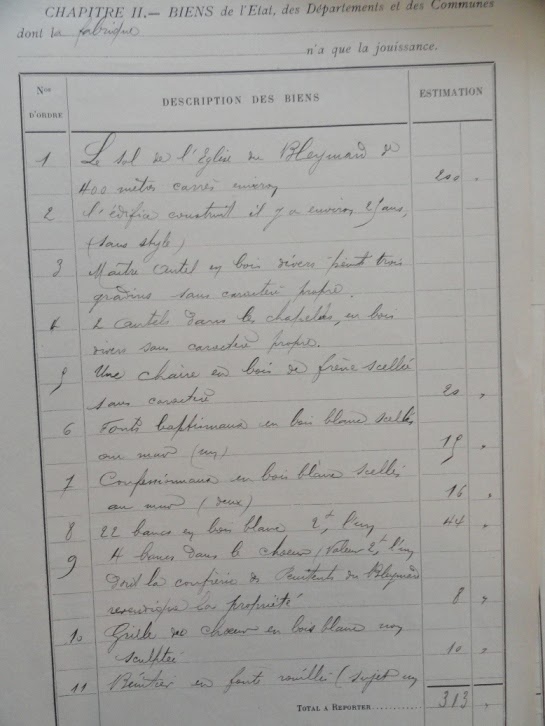 CHAPITRE II.— BIENS de l'Etat, des Départements et des Communes
dont la fabrique
n'a que la jouissance.
Nos D'ORDRE DESCRIPTION DES BIENS ESTIMATION
1 Le sol de l'Eglise du Bleymard de
400 mètres carrés environ 200 "
2 l'édifice construit il y a environ 25 ans,
(sans style)
3 Maître Autel en bois divers peint trois
gradins sans caractère propre.
4 2 Autels dans les chapelles, en bois
divers sans caractère propre.
5 Une chaire en bois de frêne scellée
sans caractère 20 "
6 Fonts baptismaux en bois blanc scellés
au mur (un) 15 "
7 Confessionnaux en bois blanc scellés
au mur (deux) 16 "
8 22 bancs en bois blanc 2f l'un 44 "
9 4 bancs dans le choeur (Valeur 2f l'un
dont la confrérie des Pénitents du Bleymard
revendique la propriété 8 "
10 Grille du choeur en bois blanc non
sculptée 10 "
11 Bénitier en fonte rouillée (sujet un
TOTAL A REPORTER 313 "